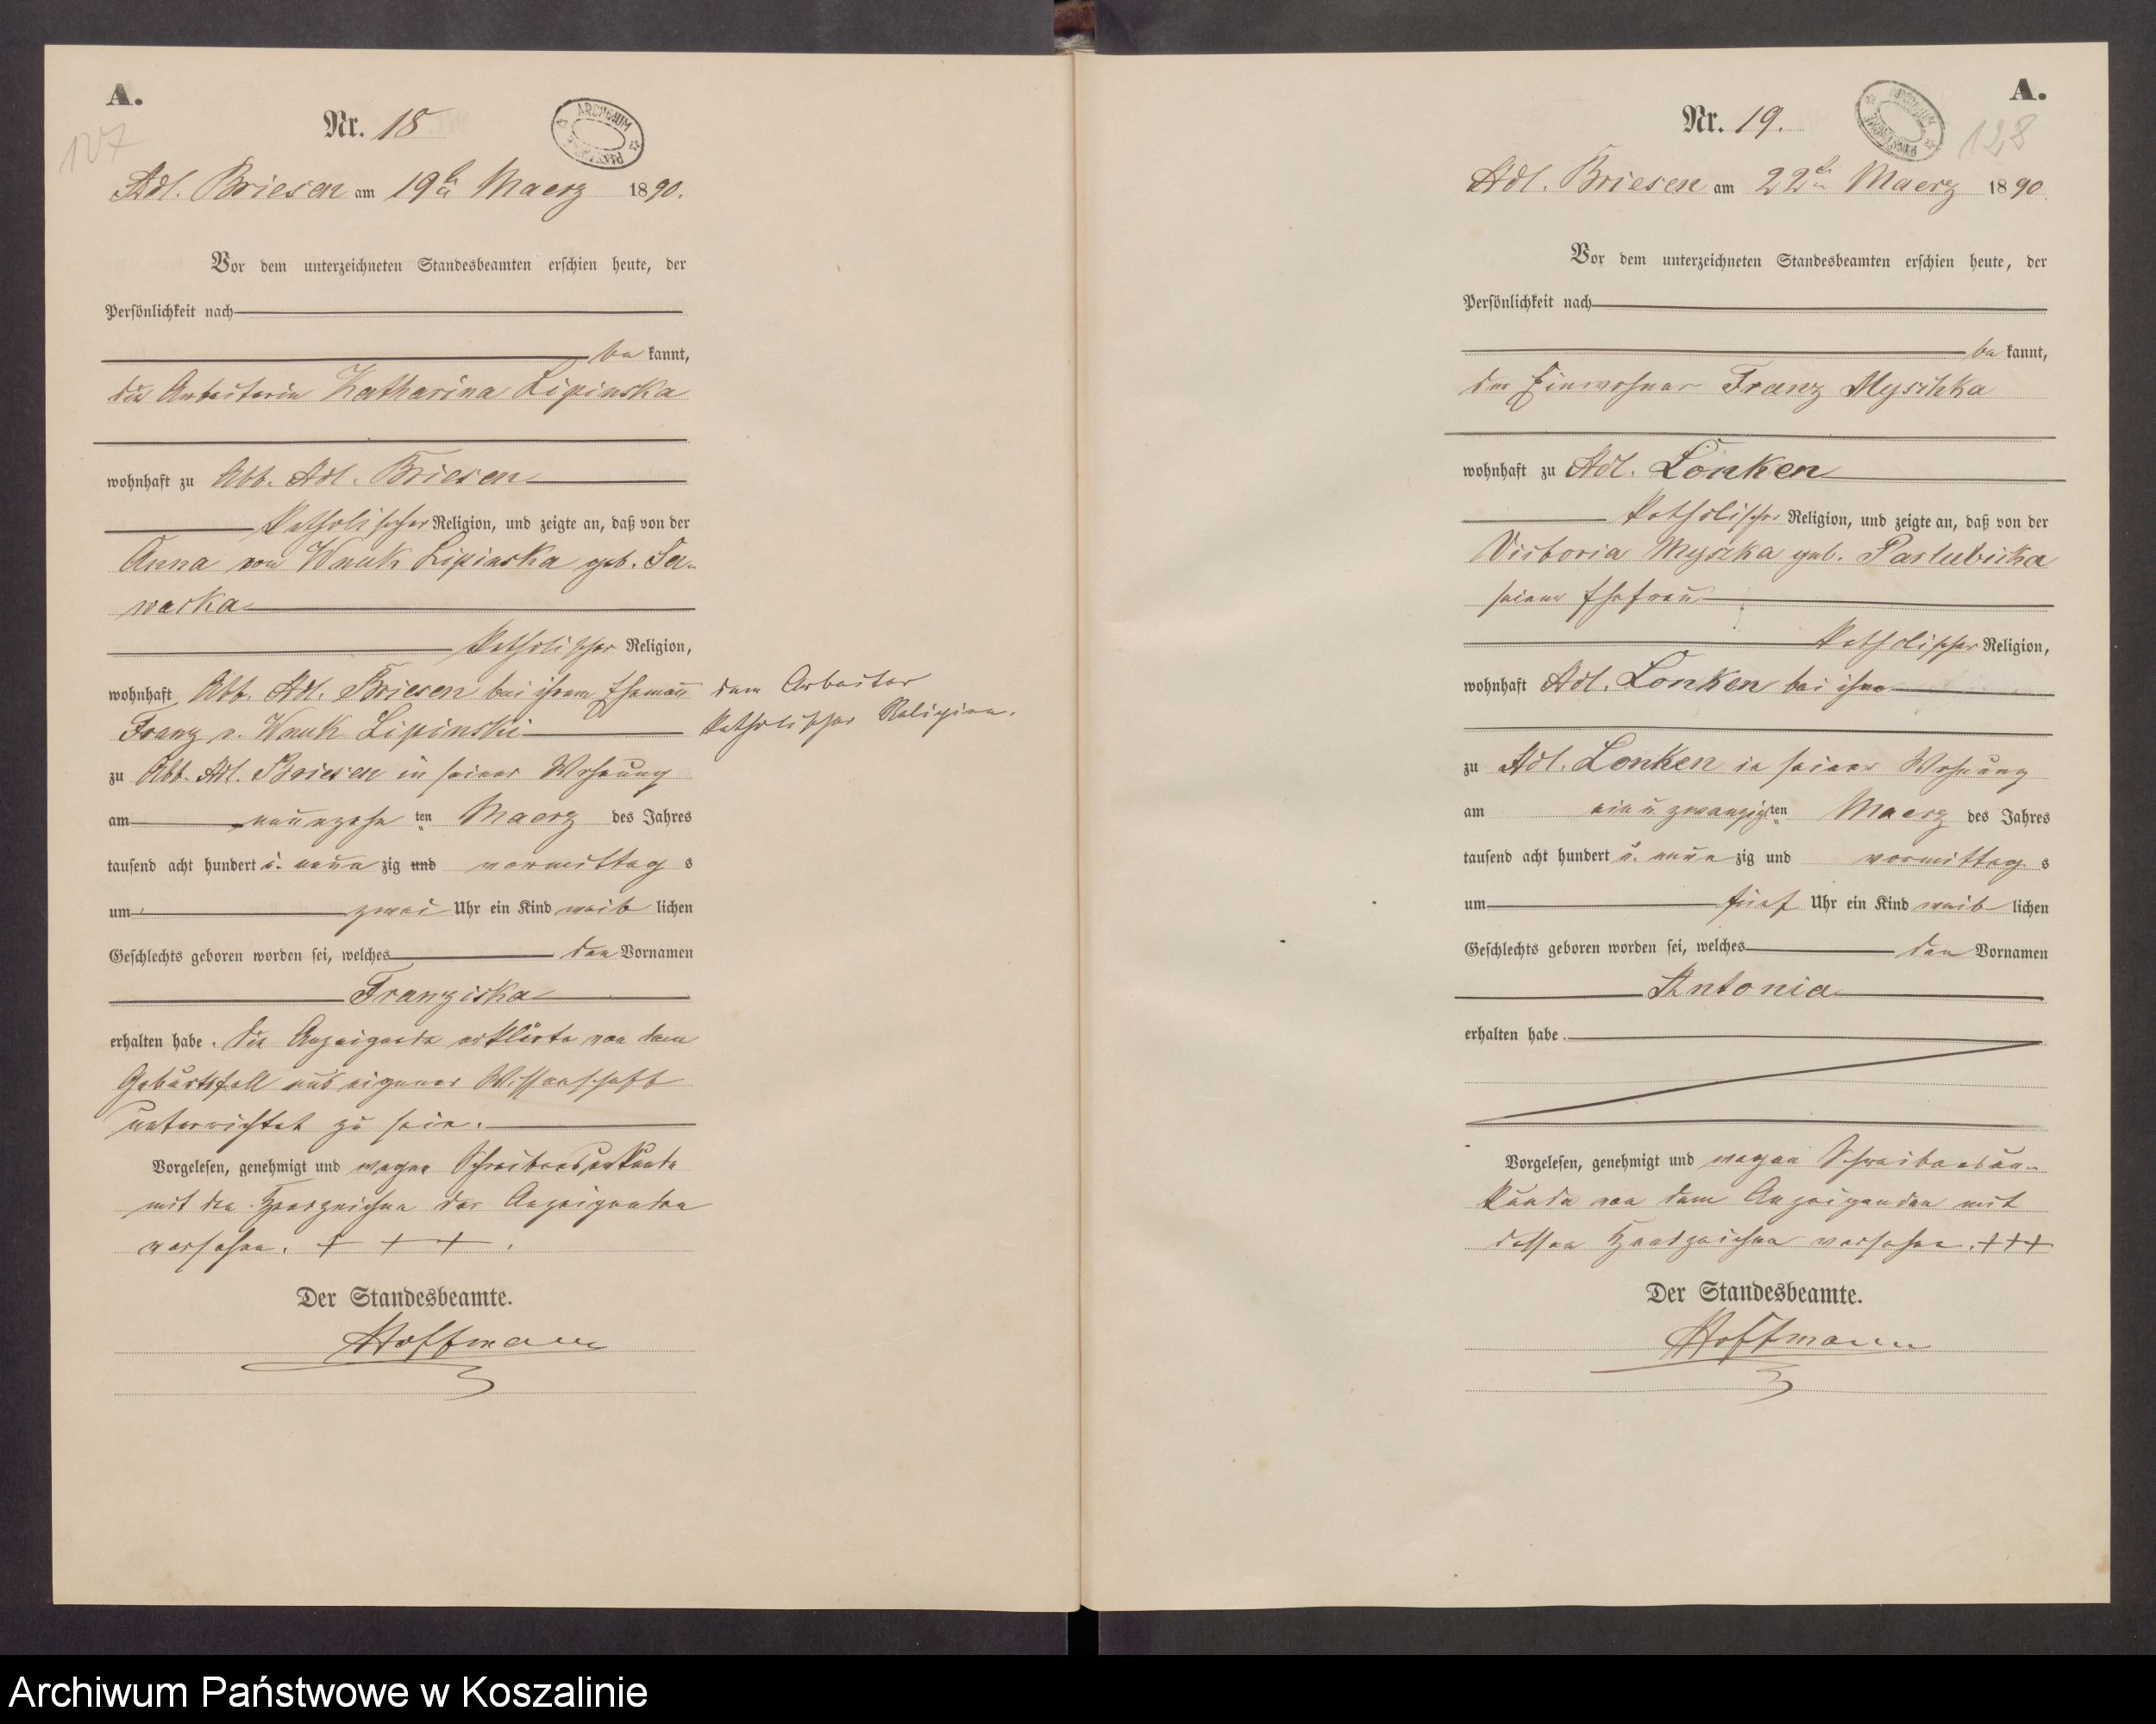 A.
127
Nr. 18
ARCHIWUM PAŃSTWOWE
Adl. Briesen am 19ten Maerz 1890.
Vor dem unterzeichneten Standesbeamten erschien heute, der
Persönlichkeit nach
be kannt,
die Arbeiterin Katharina Lipinska
wohnhaft zu Abb. Adl. Briesen
katholischer Religion, und zeigte an, daß von der
Anna von Wnuk Lipinska geb. Sa-
warka
katholischer Religion,
wohnhaft Abb. Adl. Briesen bei ihrem Ehemann dem Arbeiter
Franz v. Wnuk Lipinski katholischer Religion.
zu Abb. Adl. Briesen in seiner Wohnung
am neunzehn ten Maerz des Jahres
tausend acht hundert u. neun zig und vormittag s
um zwei Uhr ein Kind weib lichen
Geschlechts geboren worden sei, welches den Vornamen
Franziska
erhalten habe. Die Anzeigende erklärte von dem
Geburtsfall aus eigener Wissenschaft
unterrichtet zu sein.
Vorgelesen, genehmigt und wegen Schreibensunkunde
mit den Handzeichen der Anzeigenden
versehen. + + + .
Der Standesbeamte.
Hoffmann
A.
128
Nr. 19.
Adl. Briesen am 22ten Maerz 1890.
Vor dem unterzeichneten Standesbeamten erschien heute, der
Persönlichkeit nach
be kannt,
der Einwohner Franz Myschka
wohnhaft zu Adl. Lonken
katholischer Religion, und zeigte an, daß von der
Victoria Myszka geb. Paslubicka
seiner Ehefrau
katholischer Religion,
wohnhaft Adl. Lonken bei ihm
zu Adl. Lonken in seiner Wohnung
am ein u zwanzigsten Maerz des Jahres
tausend acht hundert u. neun zig und vormittag s
um fünf Uhr ein Kind weib lichen
Geschlechts geboren worden sei, welches den Vornamen
Antonia
erhalten habe.
Vorgelesen, genehmigt und wegen Schreibensun-
kunde von dem Anzeigenden mit
dessen Handzeichen versehen. +++
Der Standesbeamte.
Hoffmann
Archiwum Państwowe w Koszalinie